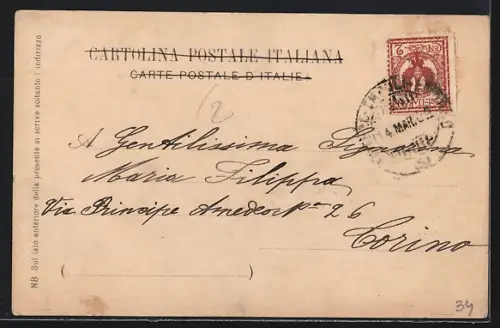 CARTOLINA POSTALE ITALIANA
CARTE POSTALE D'ITALIE
2
14 MAR. 02
A Gentilissima Signorina
Maria Filippa
Via Principe Amedeo No 26
Torino
( )
NB Sul lato anteriore della presente si scrive soltanto l'indirizzo.
34